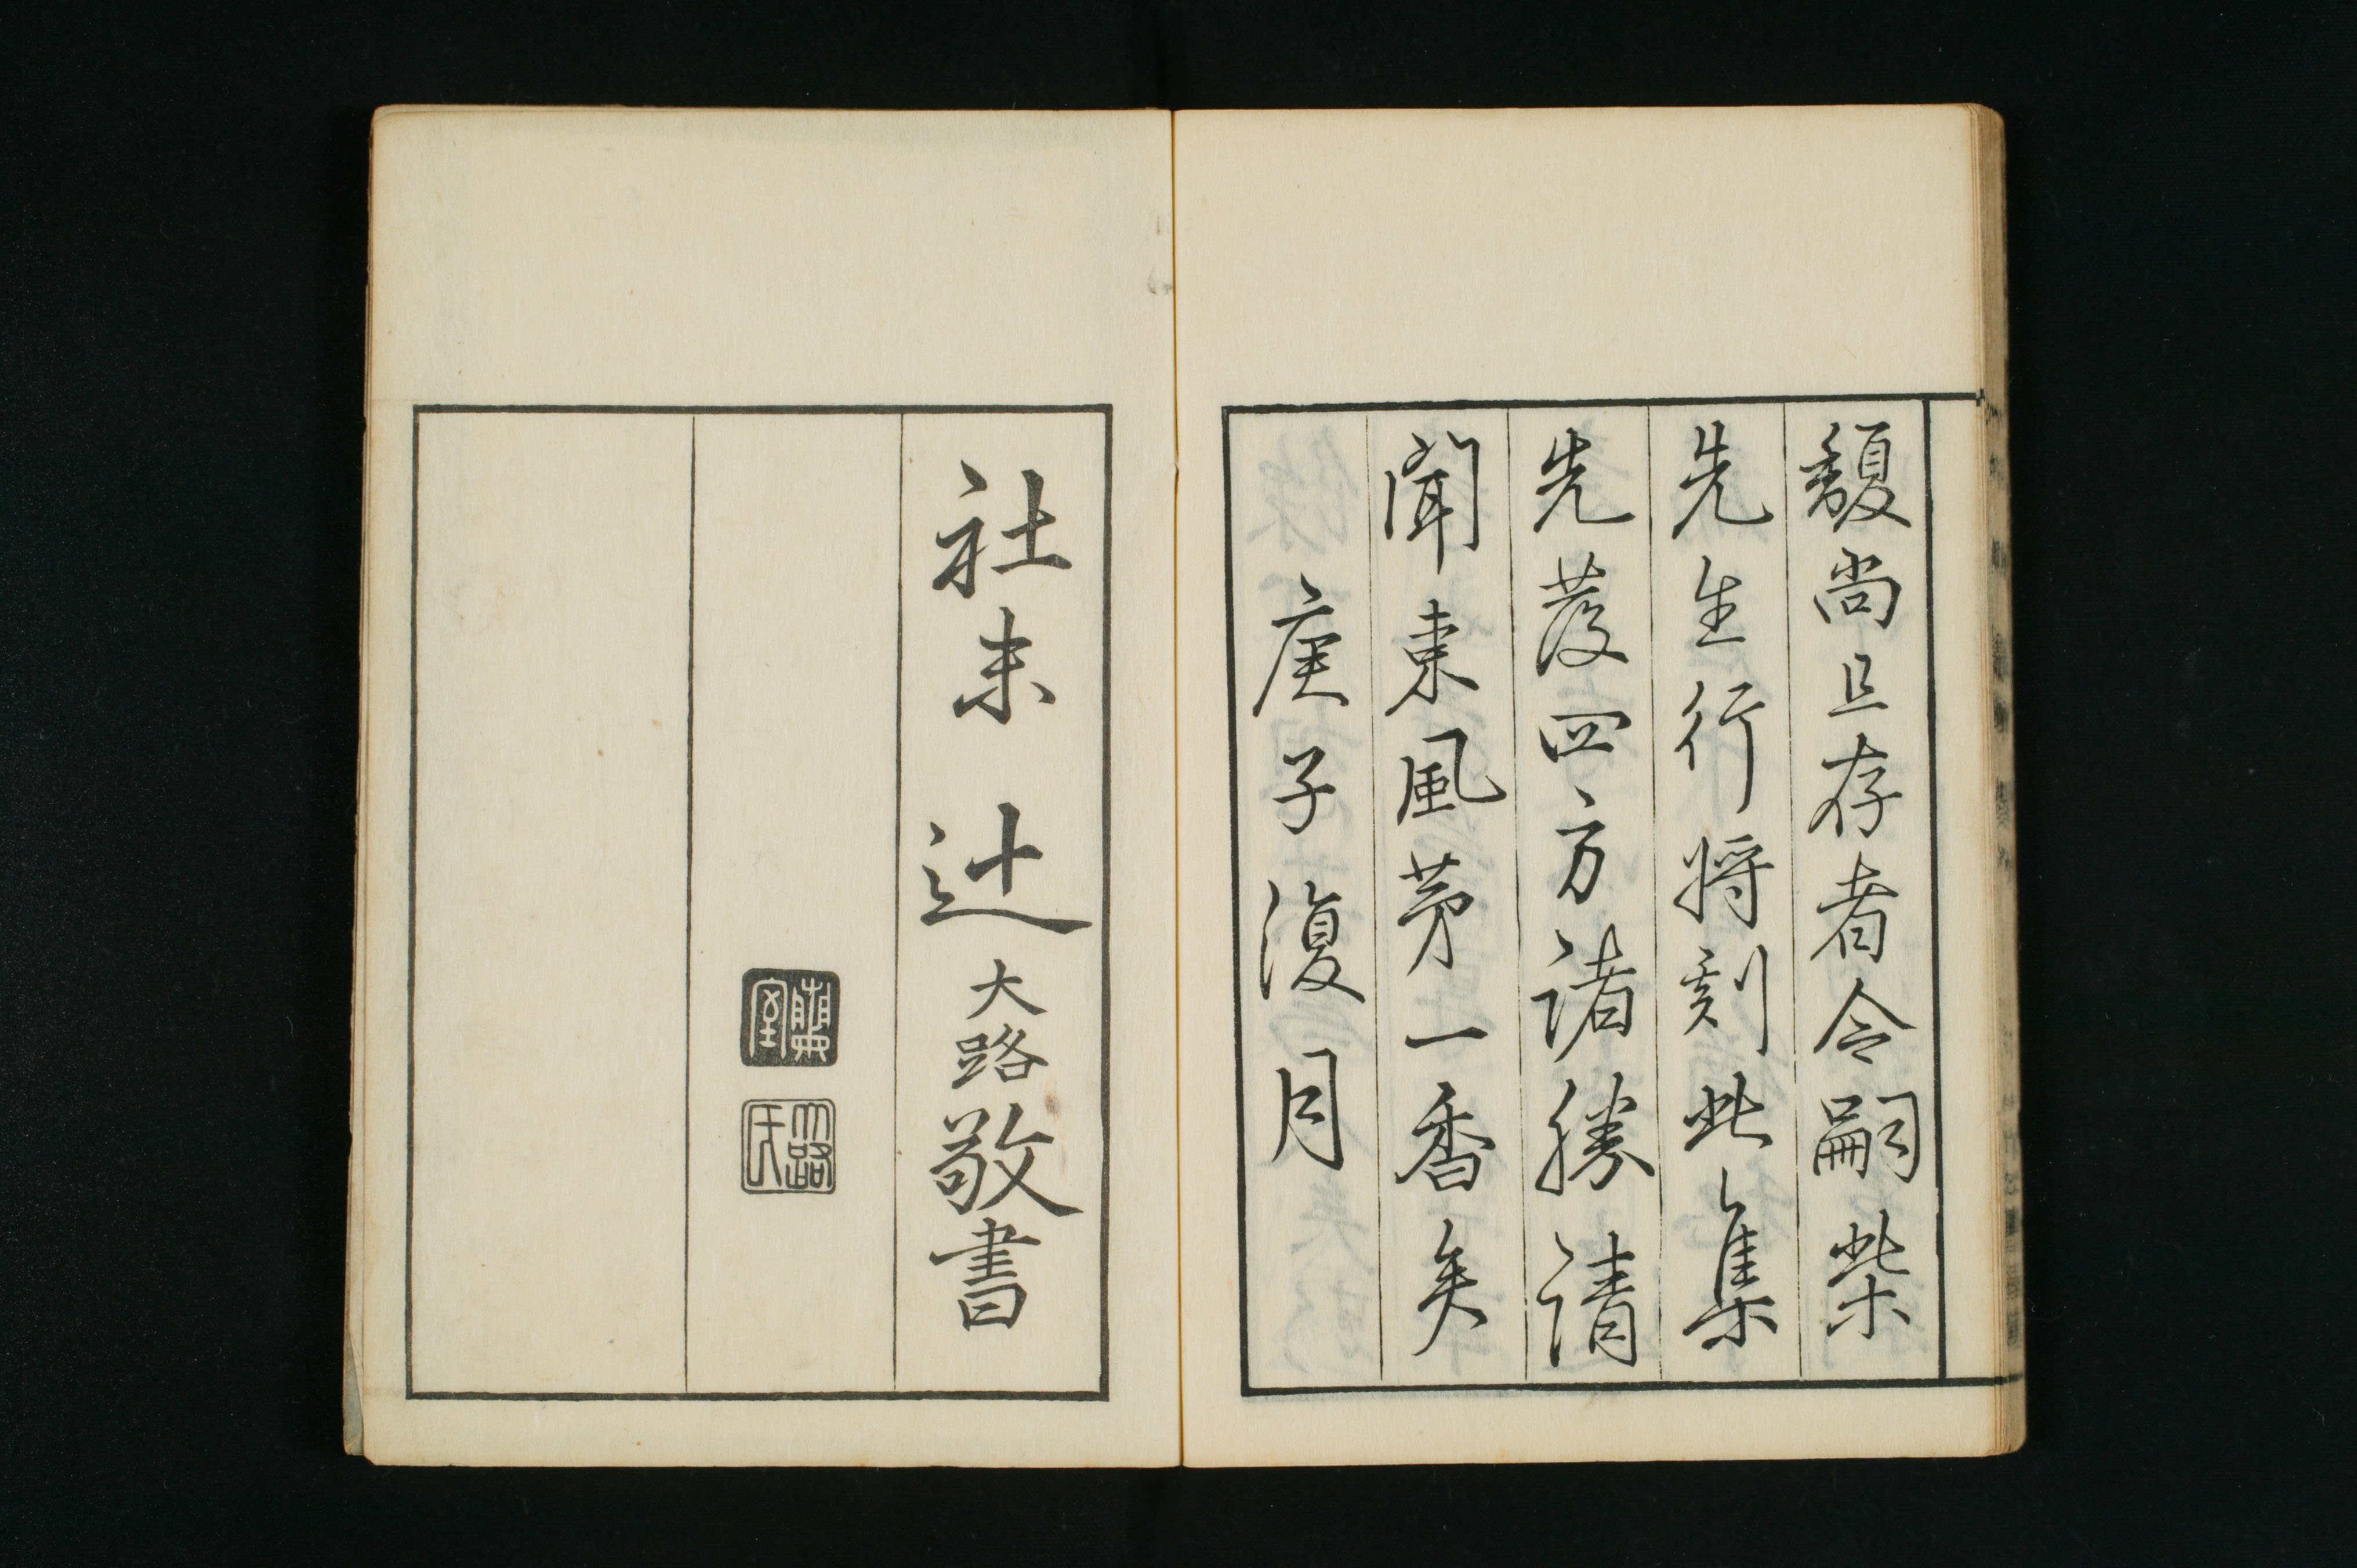 馥尚且存者令嗣柴
先生行將刻此集
先發四方諸勝請
聞東風第一香矣
庚子復月
社末 辻大路敬書
大路氏